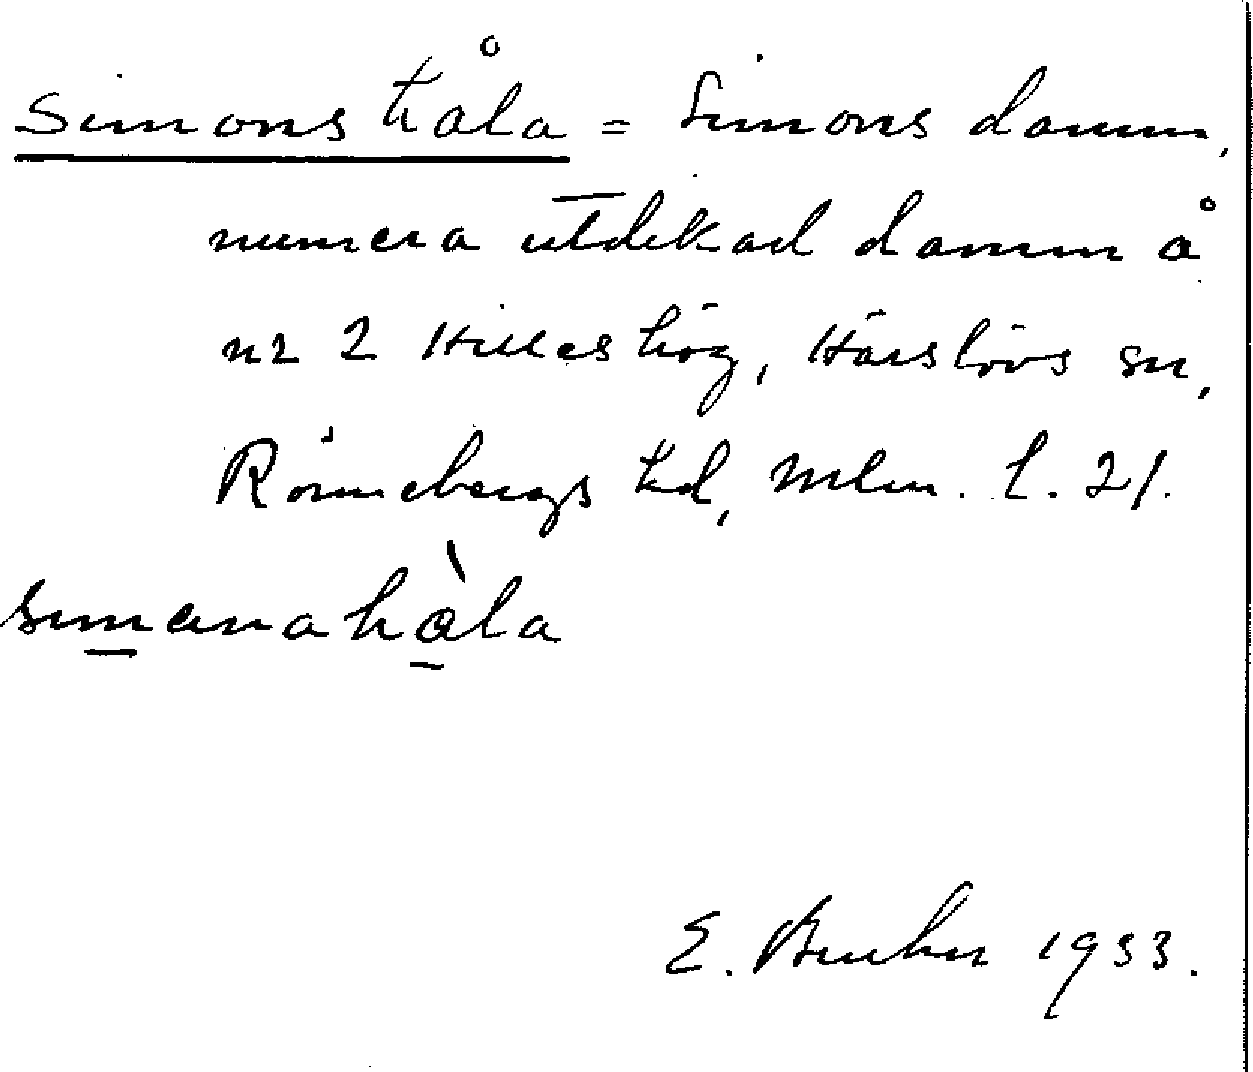 Simons håla = Simons damm,
numera utdikad damm å
nr 2 Hilleshög, Härslövs sn,
Rönnebergs hd, Mlm. l. 21.
simanahåla
E. 1933.